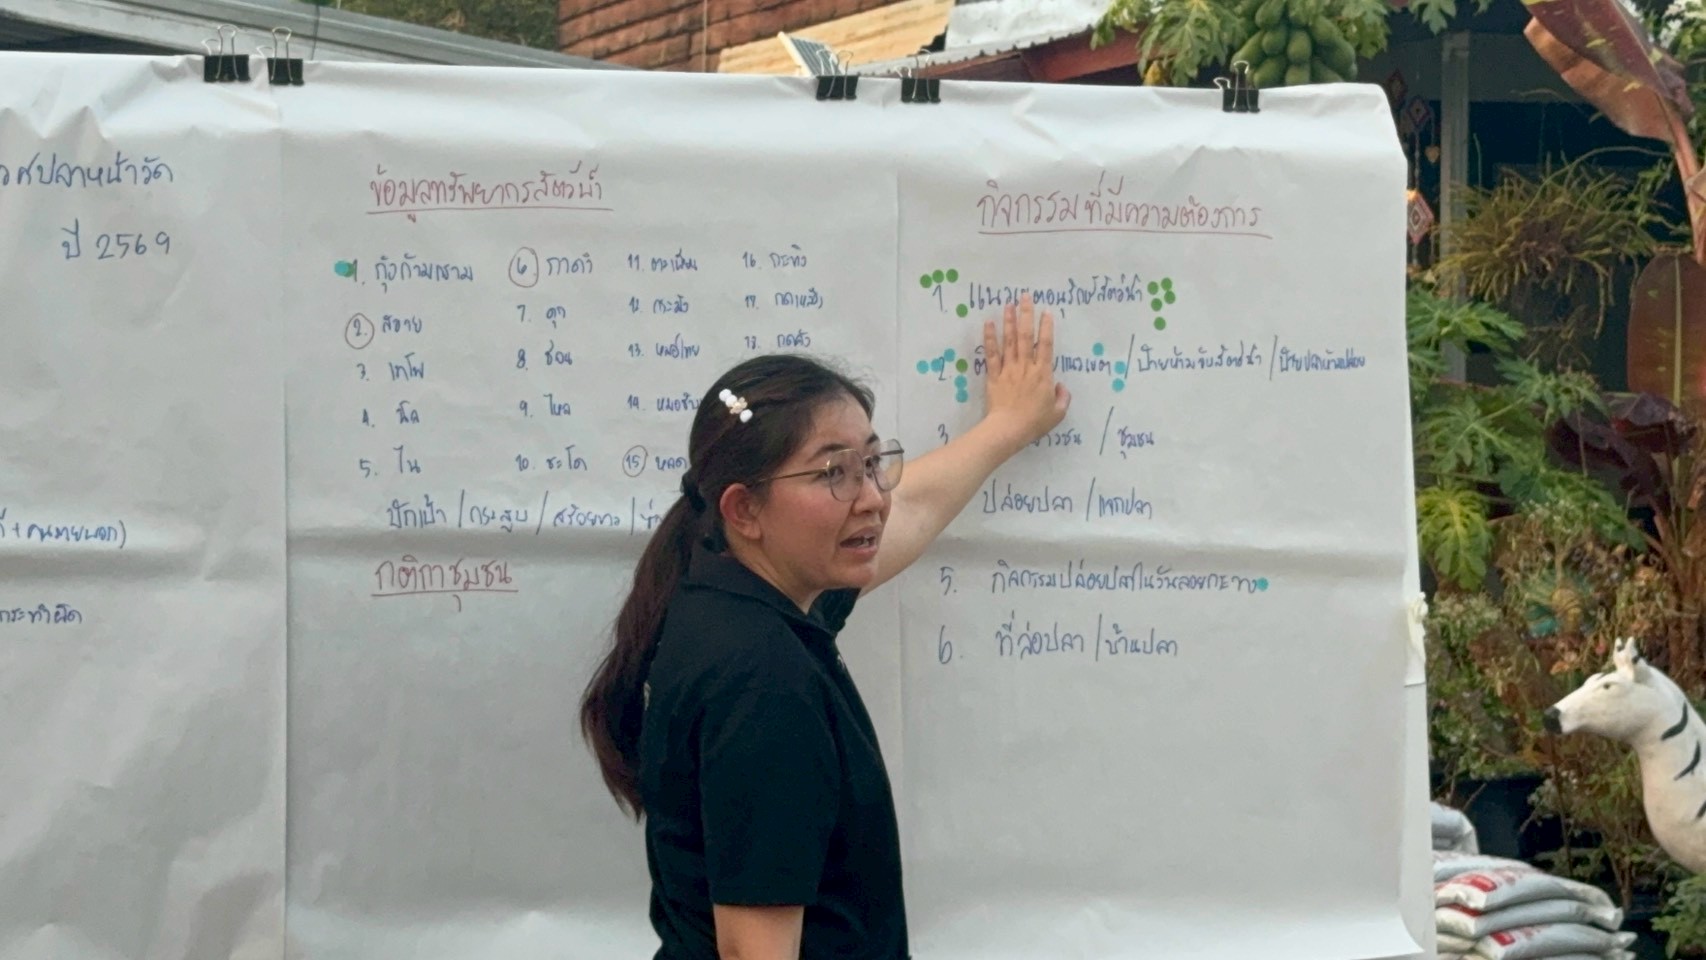 ศปลาหน้าวัด
ปี 2569
กระทำผิด
ข้อมูลทรัพยากรสัตว์น้ำ
1. กุ้งก้ามกราม
2. สวาย
3. เทโพ
4. นิล
5. ไน
6. กาดำ
7. ดุก
8. ช่อน
9. ไหล
10. ชะโด
11. ตะเพียน
12. กระมัง
13. หมอไทย
14. หมอช้าง
15. หลด
16. กระทิง
17. กดเหลือง
18. กดคัง
ปักเป้า / กระสูบ / สร้อยขาว /
กติกาชุมชน
กิจกรรมที่มีความต้องการ
1. แนวเขตอนุรักษ์สัตว์น้ำ
2. แนวเขต / ป้ายห้ามจับสัตว์น้ำ / ป้ายปลาห้ามปล่อย
3. / ชุมชน
ปล่อยปลา / แจกปลา
5. กิจกรรมปล่อยปลาในวันลอยกระทง
6. ที่ล่อปลา / บ้านปลา